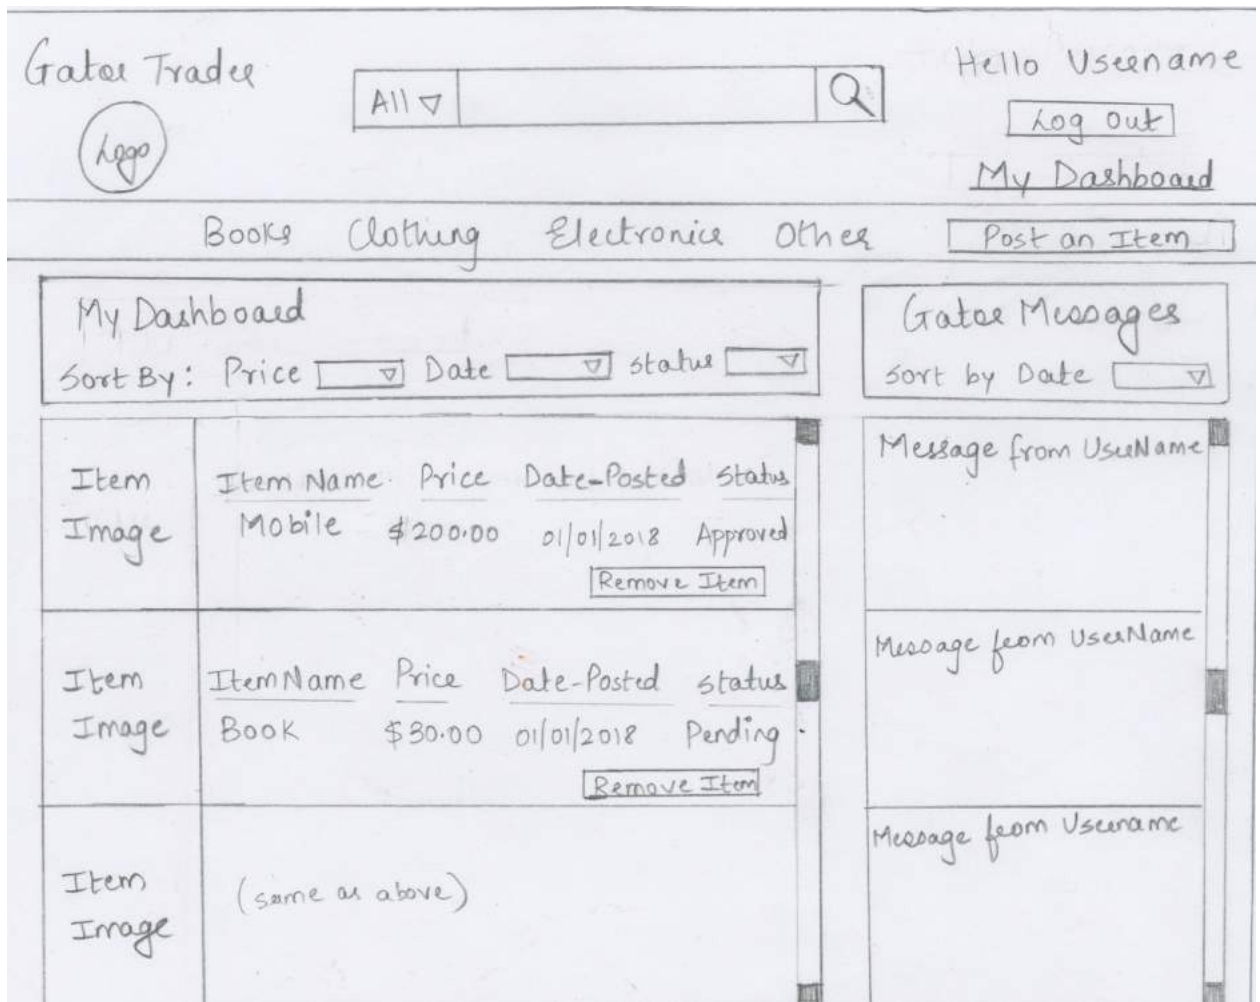 Gator Trader
Logo
All
Hello Username
Log out
My Dashboard
Books Clothing Electronics Other
Post an Item
My Dashboard
Sort By: Price Date Status
Gator Messages
Sort by Date
Item
Image
Item Name Price Date-Posted Status
Mobile $200.00 01/01/2018 Approved
Remove Item
Item
Image
Item Name Price Date-Posted Status
Book $30.00 01/01/2018 Pending
Remove Item
Item
Image
(same as above)
Message from UserName
Message from UserName
Message from Username